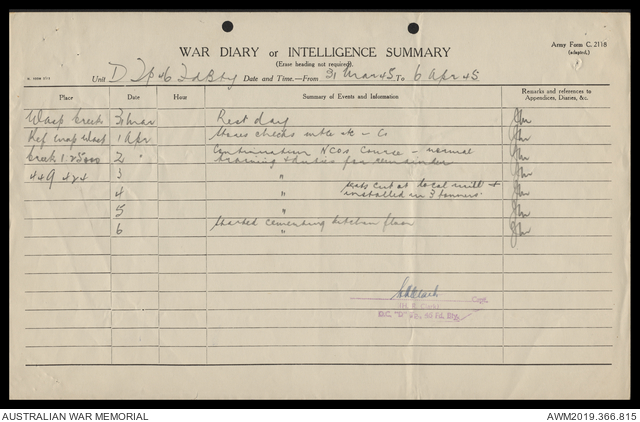 Army Form C. 2118
(adapted.)
WAR DIARY or INTELLIGENCE SUMMARY
(Erase heading not required).
Unit D Tp 6 Fd Bty Date and Time.—From 31 Mar 45 To 6 Apr 45
Place Date Hour Summary of Events and Information Remarks and references to Appendices, Diaries, &c.
Wasp Creek 31 Mar Rest day
Ref Map Wasp 1 Apr Stores checks
Creek 1:25000 2 " Continuation NCOs Course - normal training & duties for remainder
449424 3 "
4 " seats cut at local mill & installed in 3 tonners.
5 "
6 Started cementing kitchen floor "
Capt.
AUSTRALIAN WAR MEMORIAL
AWM2019.366.815